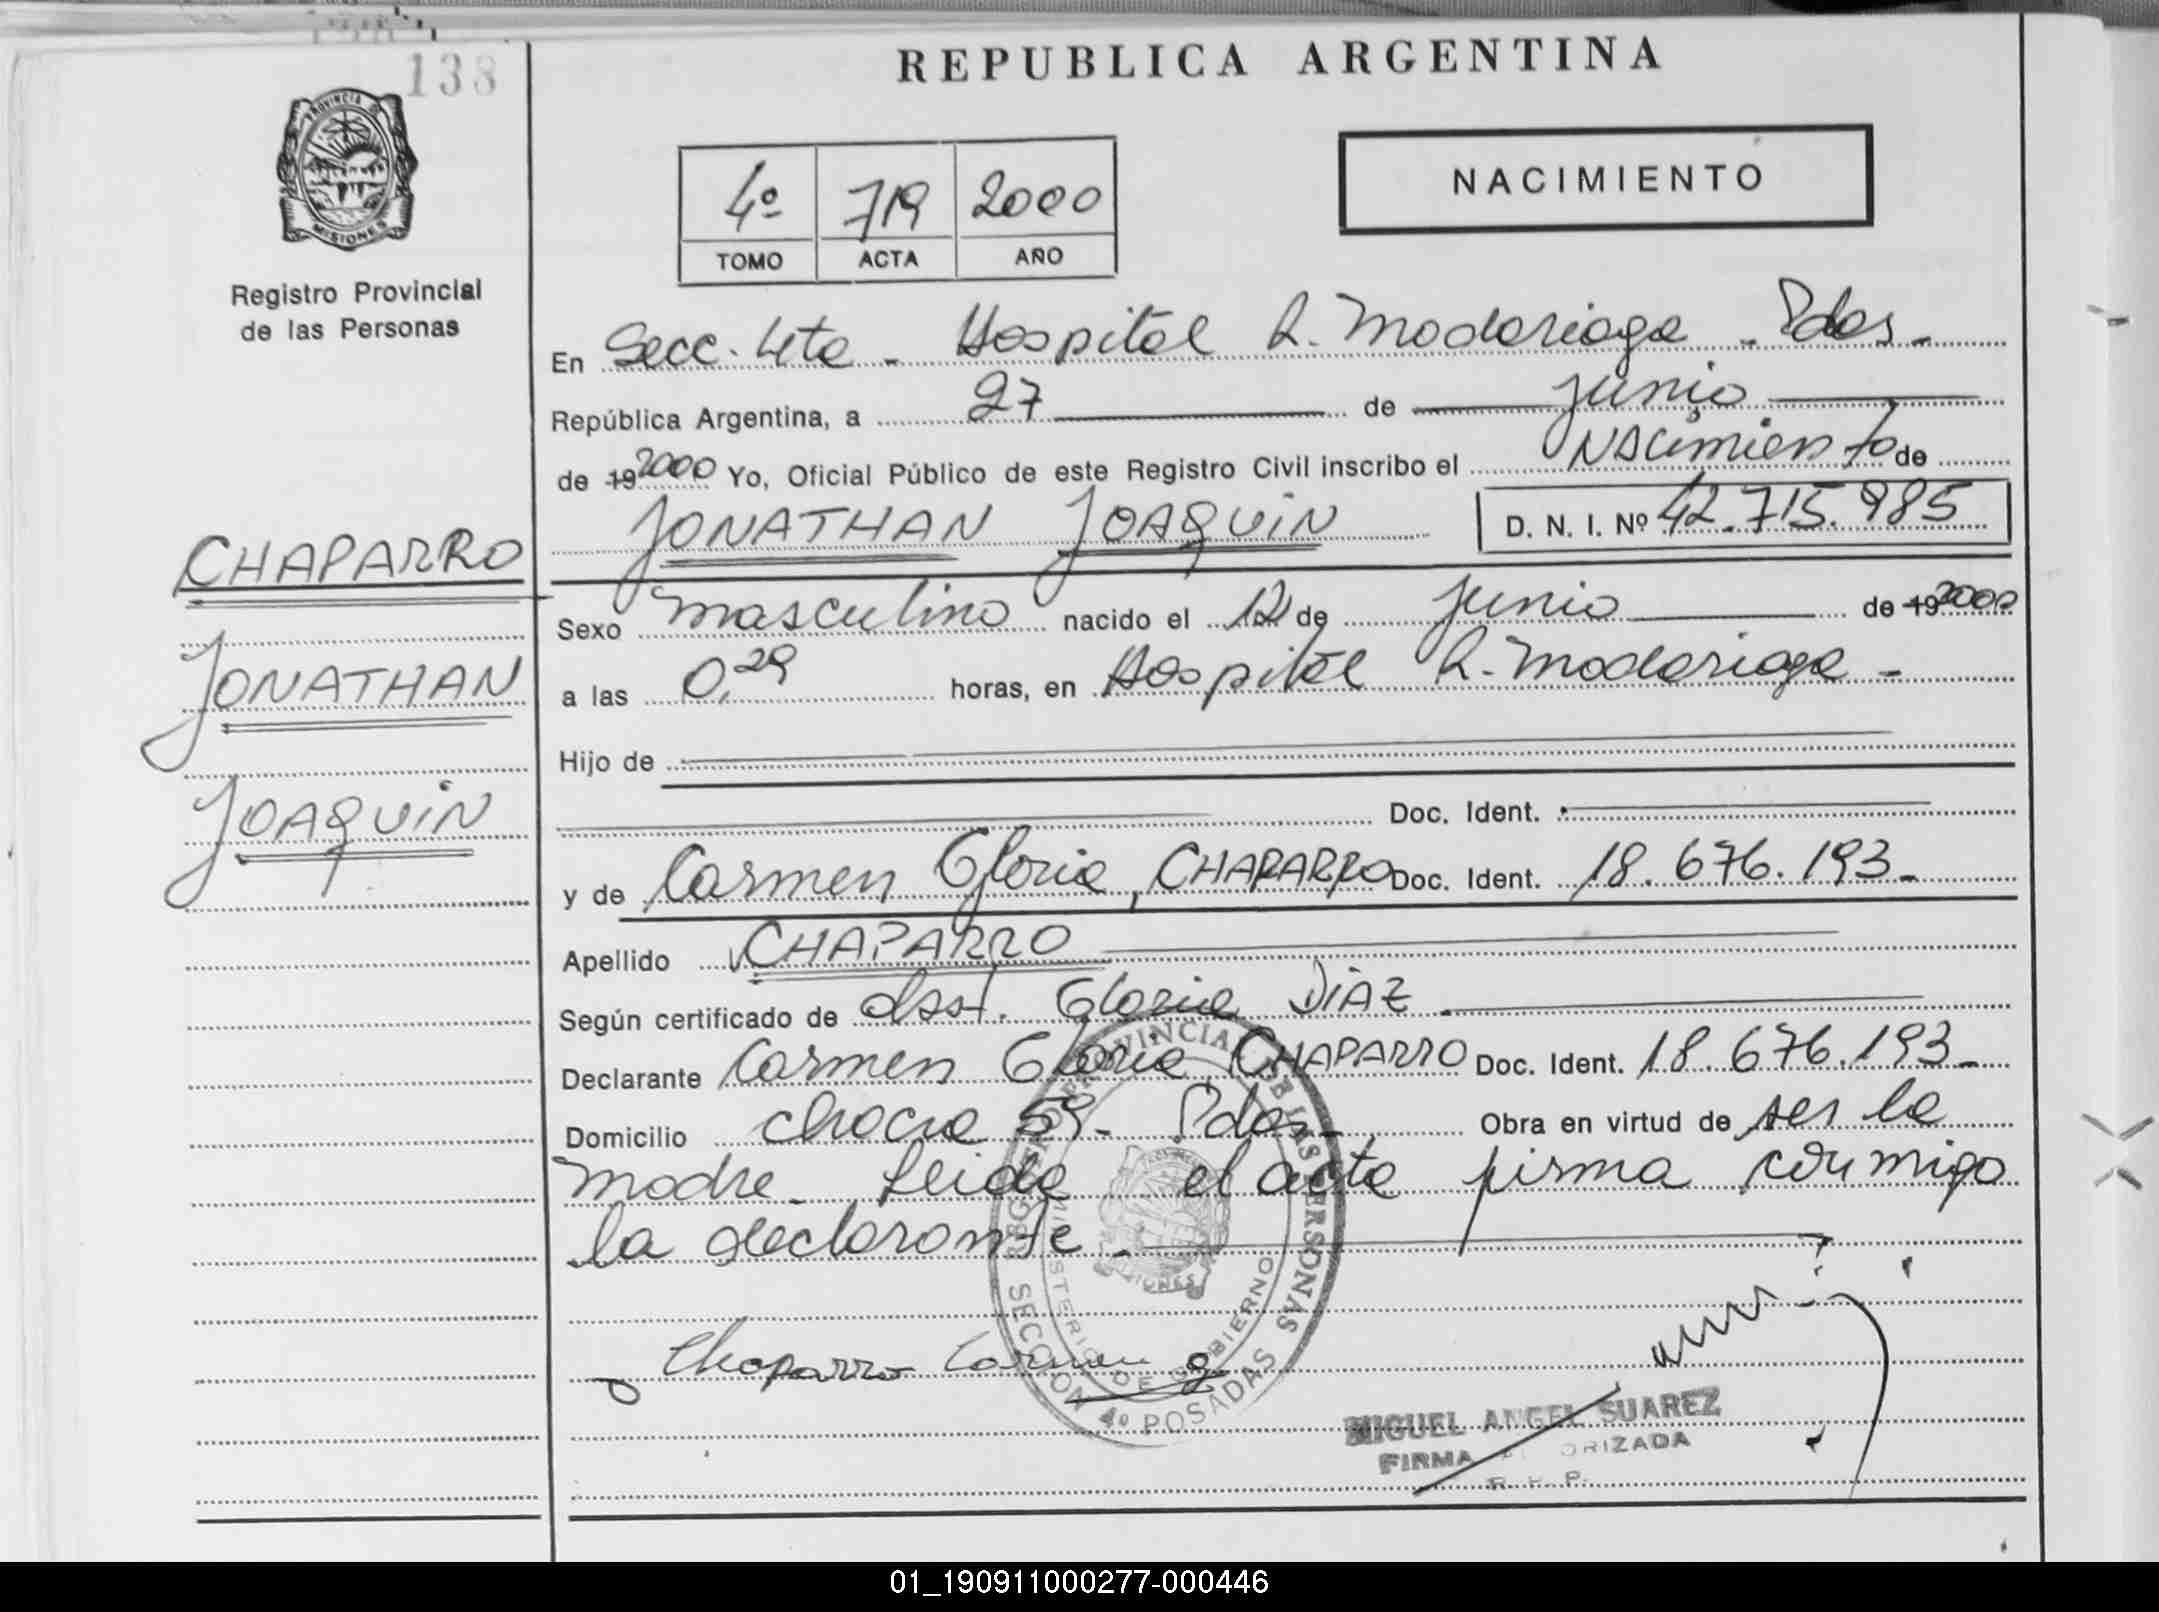 138
REPUBLICA ARGENTINA
PROVINCIA DE MISIONES
Registro Provincial
de las Personas
4º 719 2000
TOMO ACTA AÑO
NACIMIENTO
En Secc. 4ta - Hospital R. Madariaga - Pdas.
República Argentina, a 27 de junio
de 19 2000 Yo, Oficial Público de este Registro Civil inscribo el Nacimiento de
JONATHAN JOAQUIN D. N. I. Nº 42.715.985
CHAPARRO
JONATHAN
JOAQUIN
Sexo masculino nacido el 12 de junio de 19 2000
a las 0,29 horas, en Hospital R. Madariaga -
Hijo de
Doc. Ident.
y de Carmen Gloria, CHAPARRO Doc. Ident. 18.676.193-
Apellido CHAPARRO
Según certificado de Obst. Gloria DIAZ
Declarante Carmen Gloria CHAPARRO Doc. Ident. 18.676.193-
Domicilio chacra 59- Pdas- Obra en virtud de ser la
madre- Leida el acta firma conmigo
la declarante-
REGISTRO PROVINCIAL DE LAS PERSONAS
MINISTERIO DE GOBIERNO
SECCION 4º POSADAS
Chaparro Carmen g
MIGUEL ANGEL SUAREZ
FIRMA AUTORIZADA
R. P. P.
01_190911000277-000446